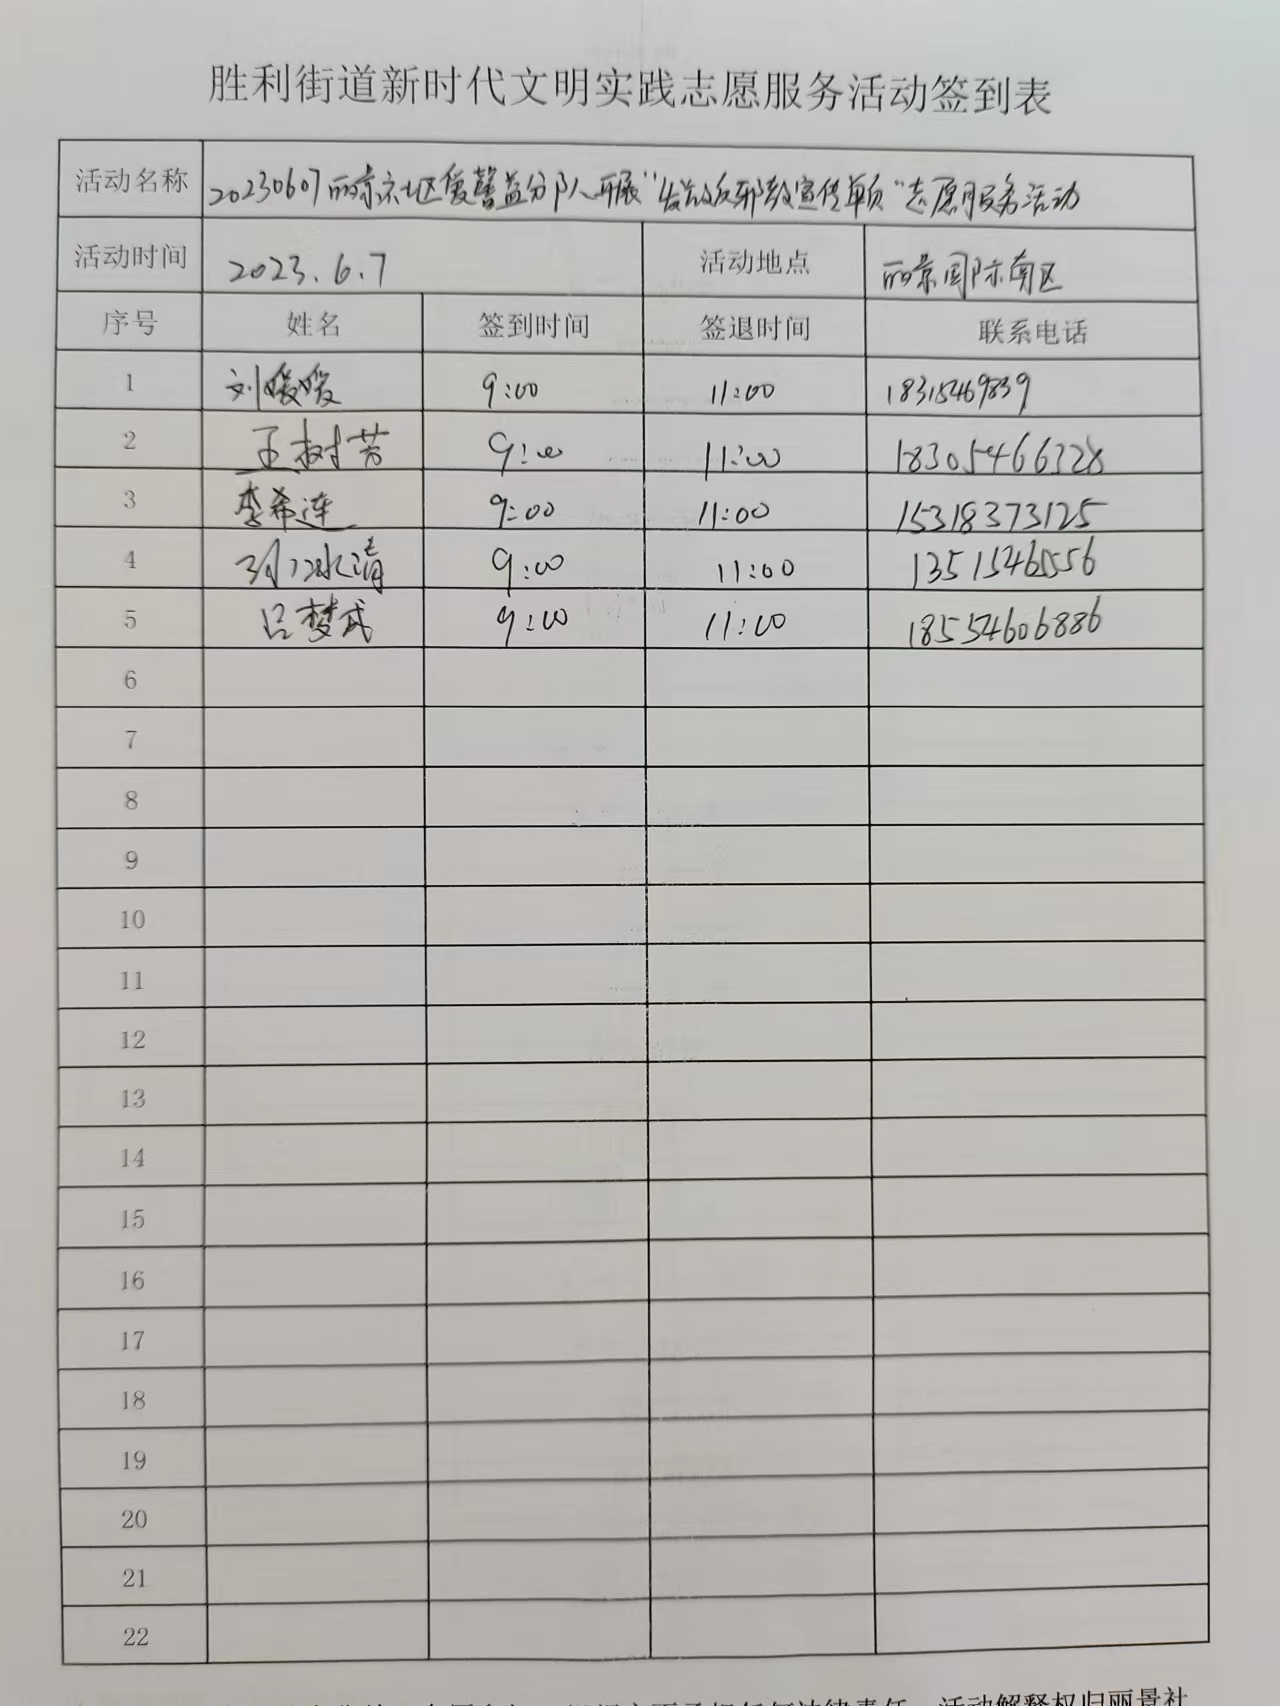 胜利街道新时代文明实践志愿服务活动签到表
活动名称 20230607丽景社区爱馨益分队开展“发放反邪教宣传单页”志愿服务活动
活动时间 2023.6.7 活动地点 丽景国际南区
序号 姓名 签到时间 签退时间 联系电话
1 刘媛媛 9:00 11:00 18315469839
2 王树芳 9:00 11:00 18305466328
3 李希连 9:00 11:00 15318373125
4 孙冰清 9:00 11:00 13515460556
5 吕梦武 9:00 11:00 18554606886
6
7
8
9
10
11
12
13
14
15
16
17
18
19
20
21
22
活动解释权归丽景社